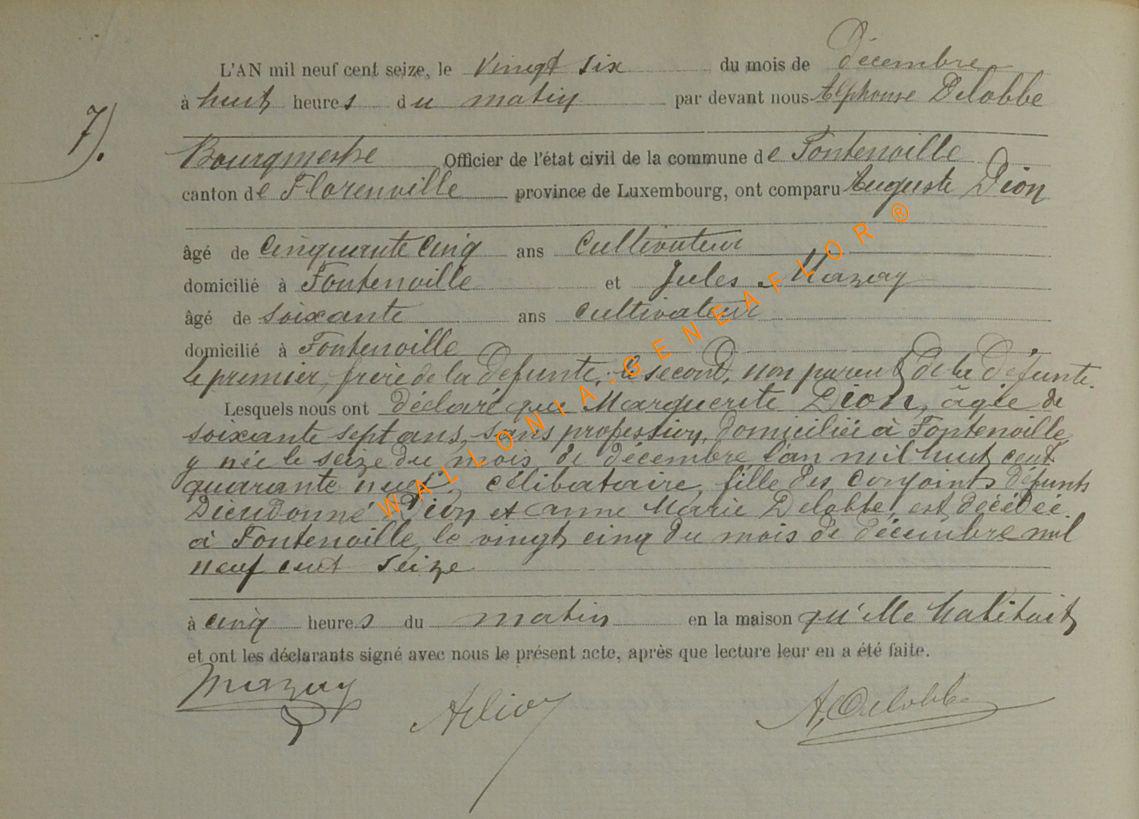 L'AN mil neuf cent seize, le vingt six du mois de décembre
à huit heures du matin par devant nous Alphonse Delobbe
7).
Bourgmestre Officier de l'état civil de la commune de Fontenoille
canton de Florenville province de Luxembourg, ont comparu Auguste Dion
âgé de cinquante cinq ans cultivateur
domicilié à Fontenoille et Jules Mazay
âgé de soixante ans cultivateur
domicilié à Fontenoille
le premier, frère de la défunte, le second, non parent de la défunte.
Lesquels nous ont déclaré que Marguerite Dion, âgée de
soixante sept ans, sans profession, domiciliée à Fontenoille,
y née le seize du mois de décembre l'an mil huit cent
quarante neuf, célibataire, fille des conjoints défunts
Dieudonné Dion et Anne Marie Delobbe, est décédée
à Fontenoille, le vingt cinq du mois de décembre mil
neuf cent seize
à cinq heures du matin en la maison qu'elle habitait
et ont les déclarants signé avec nous le présent acte, après que lecture leur en a été faite.
Mazay ADion A. Delobbe
WALLONIA-GENEAFLOR®